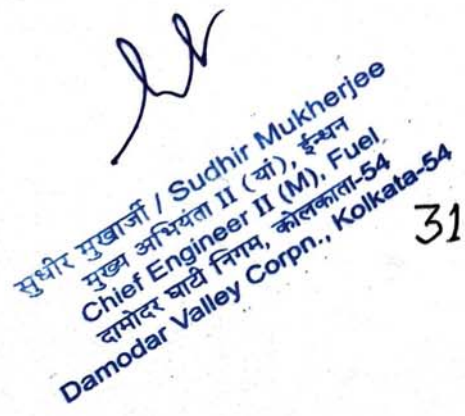 सुधीर मुखार्जी / Sudhir Mukherjee
मुख्य अभियंता II (यां), ईन्धन
Chief Engineer II (M), Fuel
दामोदर घाटी निगम, कोलकाता-54
Damodar Valley Corpn., Kolkata-54
31